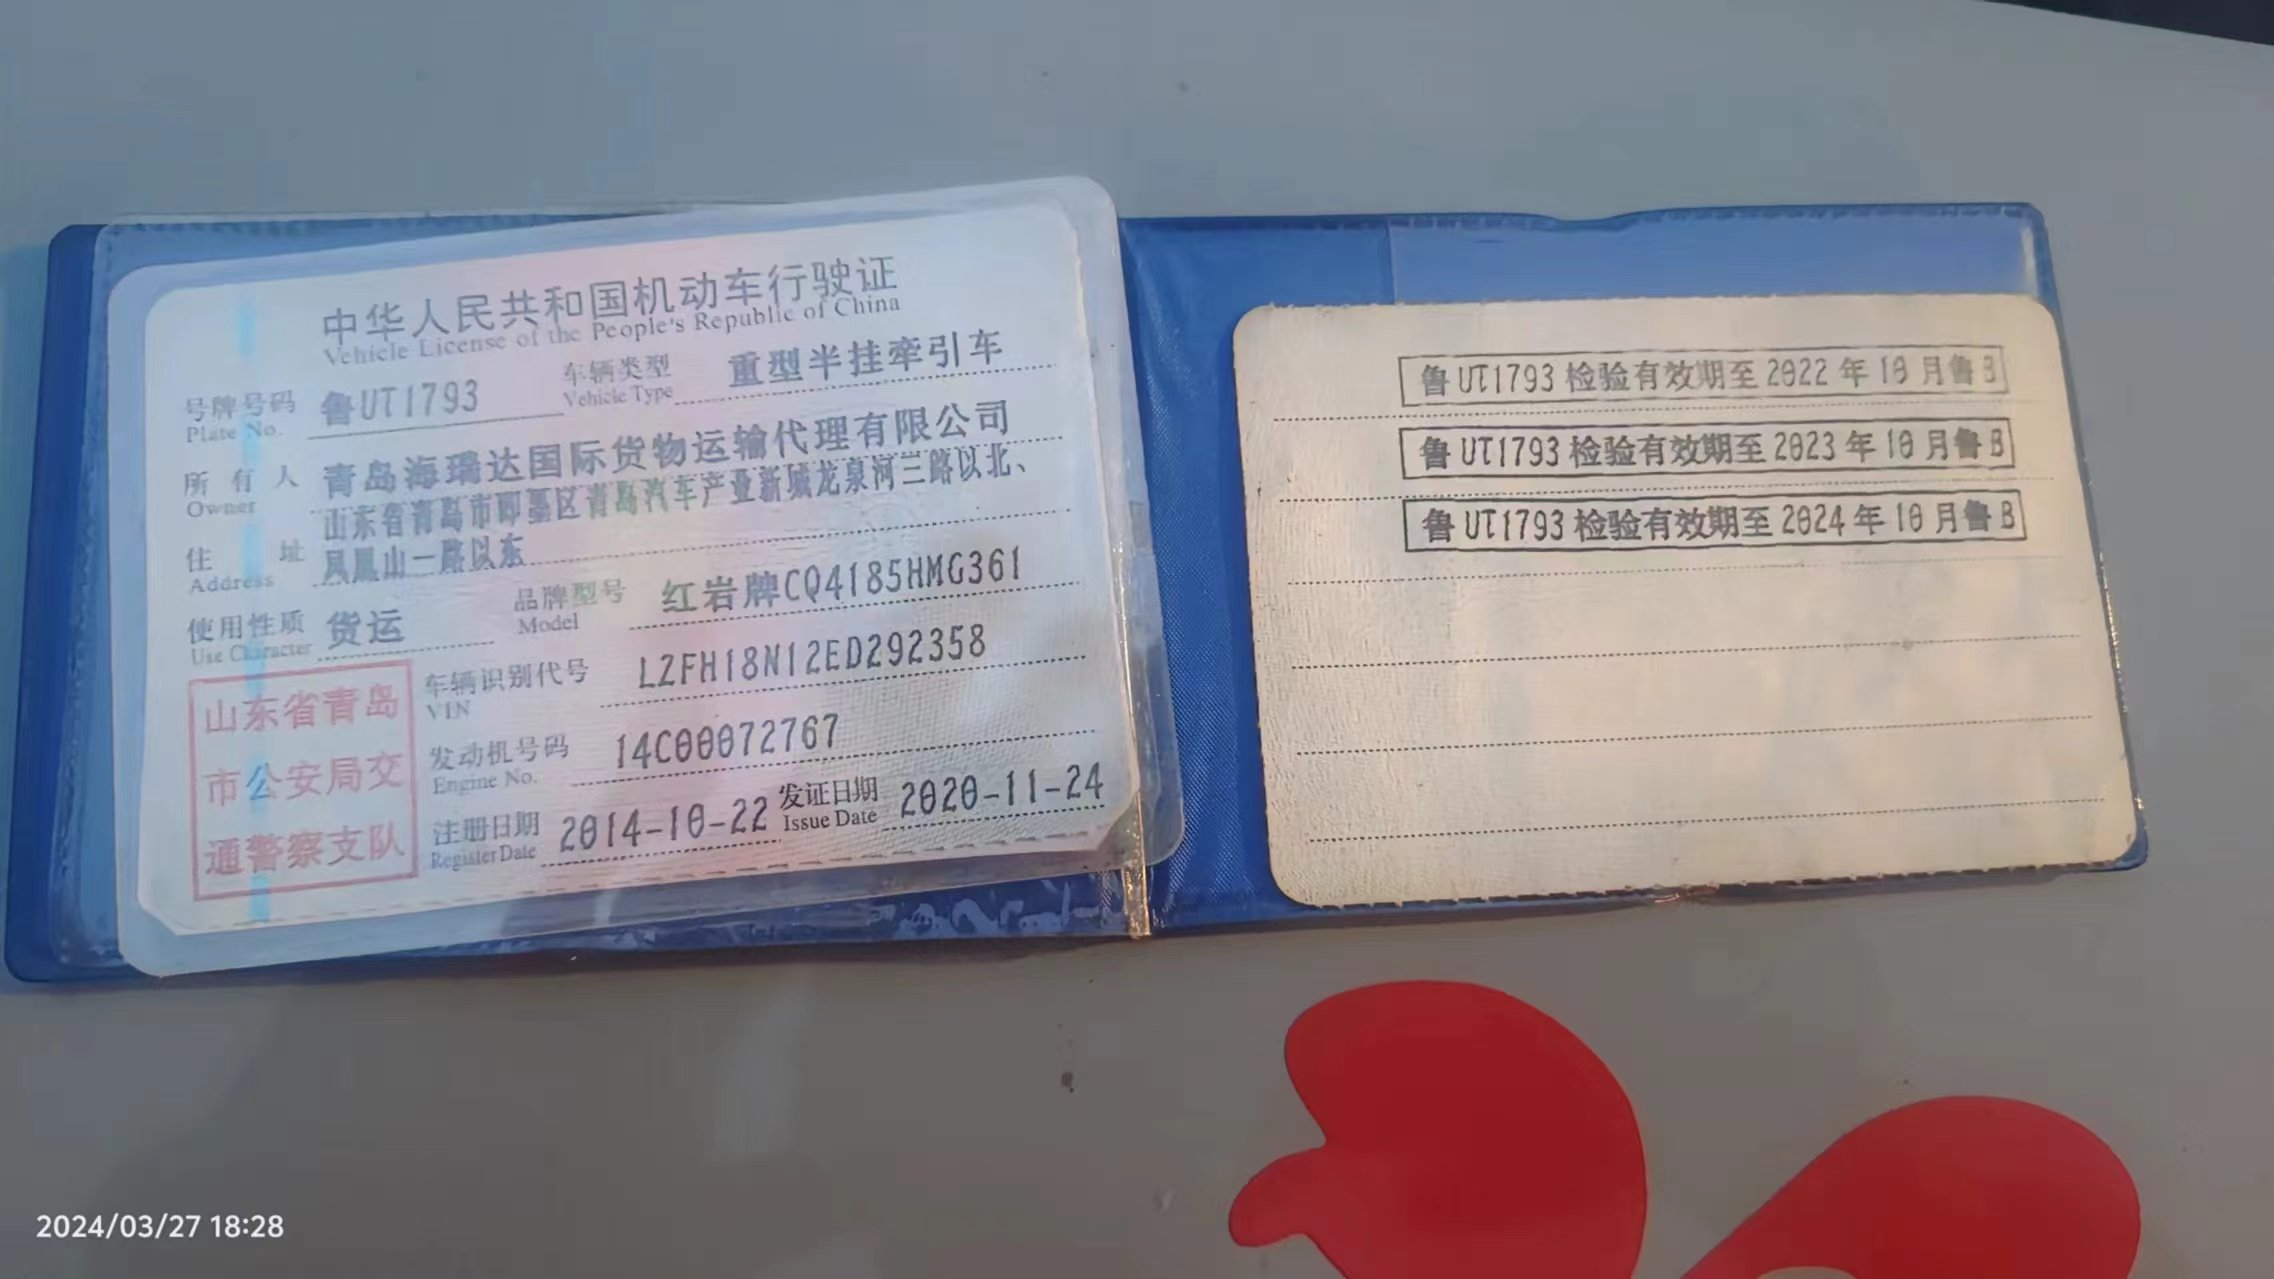 中华人民共和国机动车行驶证
Vehicle License of the People's Republic of China
号牌号码 鲁UT1793 车辆类型 重型半挂牵引车
Plate No. Vehicle Type
所有人 青岛海瑞达国际货物运输代理有限公司
Owner
山东省青岛市即墨区青岛汽车产业新城龙泉河三路以北、
住址 凤凰山一路以东
Address
使用性质 货运 品牌型号 红岩牌CQ4185HMG361
Use Character Model
车辆识别代号 LZFH18N12ED292358
VIN
发动机号码 14C00072767
Engine No.
注册日期 2014-10-22 发证日期 2020-11-24
Register Date Issue Date
山东省青岛
市公安局交
通警察支队
鲁UT1793检验有效期至2022年10月鲁B
鲁UT1793检验有效期至2023年10月鲁B
鲁UT1793检验有效期至2024年10月鲁B
2024/03/27 18:28